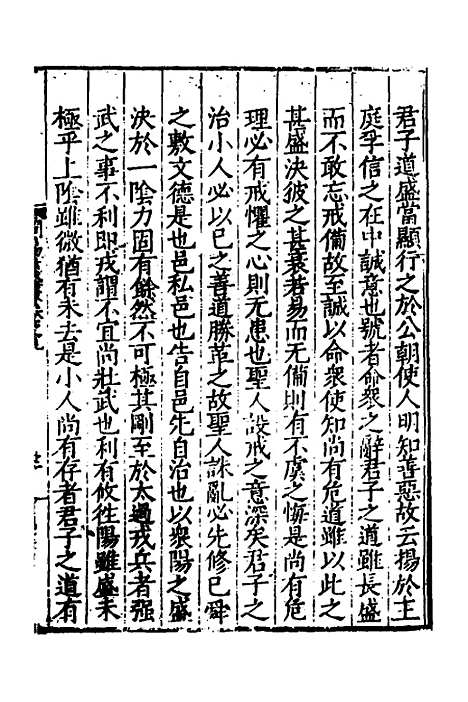 君子道盛當顯行之於公朝使人明知善惡故云揚於王
庭孚信之在中誠意也號者命衆之辭君子之道雖長盛
而不敢忘戒備故至誠以命衆使知尚有危道雖以此之
甚盛決彼之甚衰若易而无備則有不虞之悔是尚有危
理必有戒懼之心則无患也聖人設戒之意深矣君子之
治小人必以已之善道勝革之故聖人誅亂必先修已舜
之敷文德是也邑私邑也告自邑先自治也以衆陽之盛
決於一陰力固有餘然不可極其剛至於太過戎兵者强
武之事不利即戎謂不宜尚壯武也利有攸徃陽雖盛未
極乎上陰雖微猶有未去是小人尚有存者君子之道有